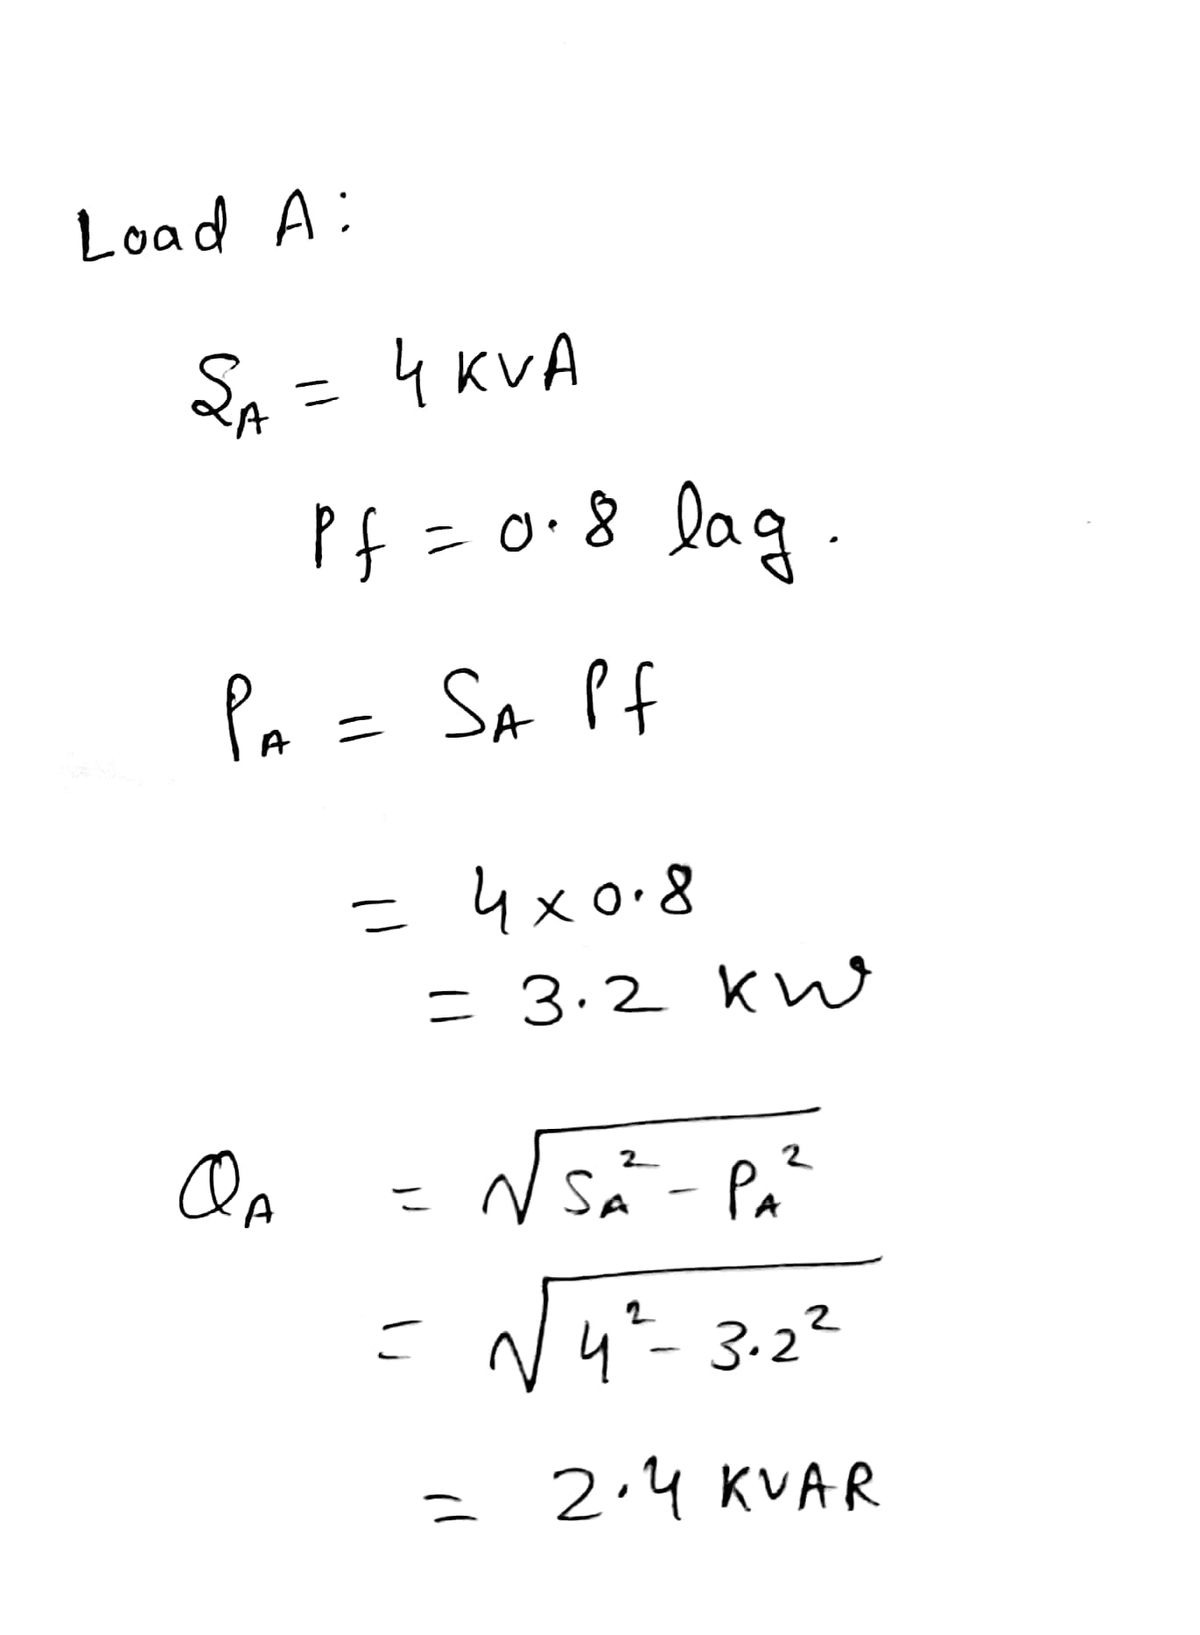 Load A:
S_A = 4 KVA
Pf = 0.8 lag.
P_A = S_A Pf
= 4 × 0.8
= 3.2 KW
Q_A = √(S_A² - P_A²)
= √(4² - 3.2²)
= 2.4 KVAR